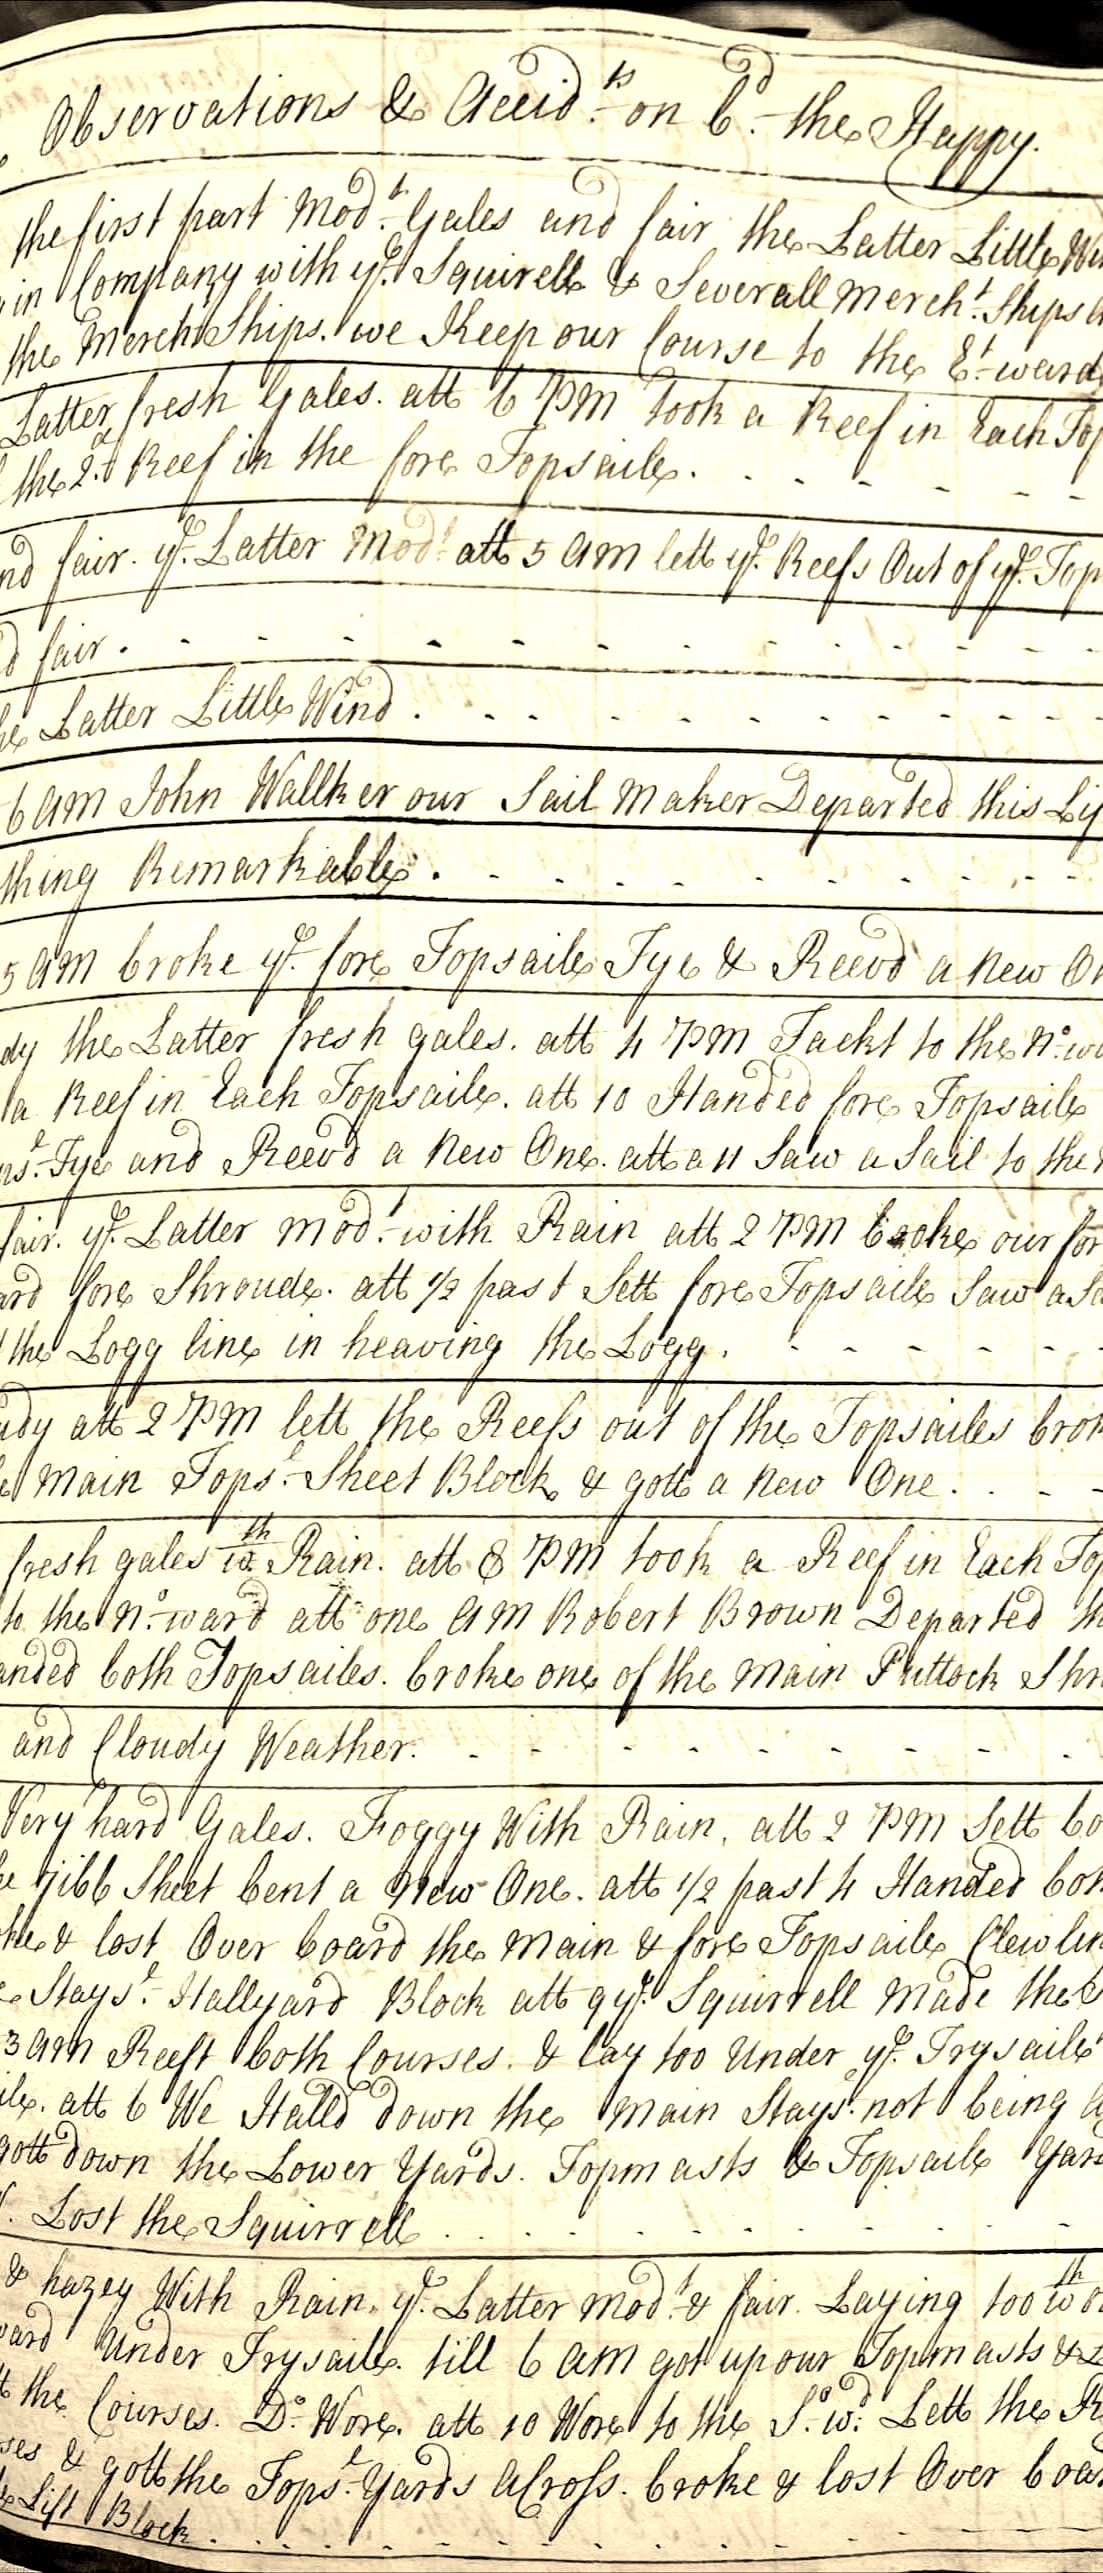 Observations & Accidts. on bd. the Happy.
the first part Modt. Gales and fair the Latter Little Wi
in Company with ye. Squirell & Severall Mercht. Ships
the Mercht Ships. we Keep our Course to the Et.ward
Latter fresh Gales. att 6 PM took a Reef in Each Top
the 2d. Reef in the fore Topsaile. . . - - - -
nd fair. ye. Latter Modt. att 5 AM lett ye. Reefs Out of ye. Top
d fair. - - - - - - - - - - - -
he Latter Little Wind . - - - - - - - - -
6 AM John Wallker our Sail Maker Departed this Lif
thing Remarkable. . - - - - - - - - -
5 AM broke ye. fore Topsaile Tye & Reevd a New On
dy the Latter fresh gales. att 4 PM Tackt to the No.wa
a Reef in Each Topsaile. att 10 Handed fore Topsaile
ps.l Tye and Reevd a New One. att a 11 Saw a Sail to the
fair. ye. Latter modt. with Rain att 2 PM broke our for
ard fore Shroude. att 1/2 past Sett fore Topsaile Saw a Sa
the Logg line in heaving the Logg. - - - - - -
udy att 2 PM lett the Reefs out of the Topsailes brok
e Main Tops.l Sheet Block & gott a New One. . - -
fresh gales wth. Rain. att 8 PM took a Reef in Each Top
to the No.ward att one AM Robert Brown Departed th
anded both Topsailes. broke one of the Main Puttock Shr
and Cloudy Weather. - - - - - - - - - .
Very hard Gales. Foggy With Rain, att 2 PM Sett bo
he Jibb Sheet bent a New One. att 1/2 past 4 Handed both
oke & lost Over board the Main & fore Topsaile Clewlin
e Stays.l Hallyard Block att 9 ye. Squirrell Made the S
3 AM Reeft both Courses. & lay too Under ye. Trysaile
ile. att 6 We Halld down the Main Stays.l not being a
gott down the Lower Yards. Topmasts & Topsaile Yard
Lost the Squirrell . . . . . . . . . .
& hazey With Rain. ye. Latter modt. & fair. Laying too wth o
ward Under Trysaile. till 6 AM got up our Topmasts &
t the Courses. Do. Wore. att 10 Wore to the So.wd. Lett the R
ses & gott the Tops.l Yards aCross. broke & lost Over boar
e Lift Block. . . . . . . . . . .